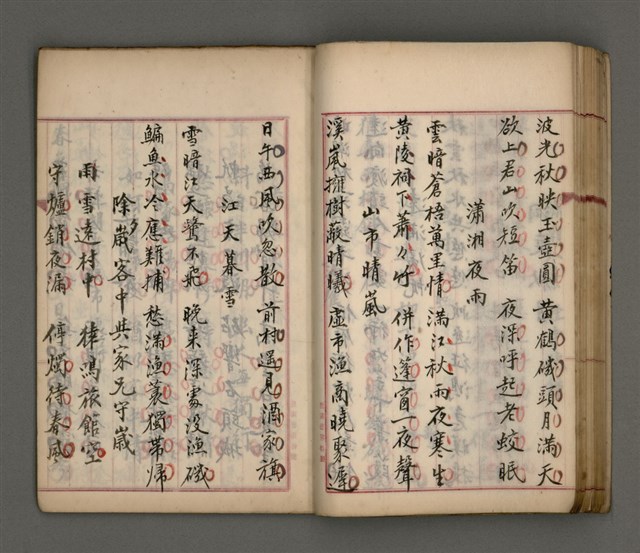 波光秋映玉壺圓 黃鶴磯頭月滿天
欲上君山吹短笛 夜深呼起老蛟眠
瀟湘夜雨
雲暗蒼梧萬里情 滿江秋雨夜寒生
黃陵祠下蕭々竹 併作蓬窗一夜聲
山市晴嵐
溪嵐擁樹蔽晴曦 虛市漁商曉聚遲
日午西風吹忽散 前村遥見酒家旗
江天暮雪
雪暗江天鷺不飛 晚来深處没漁磯
鯿魚水冷應難捕 愁滿漁蓑獨帶歸
除歲客中共家兄守歲
雨雪達村中 旅館空
守爐銷夜漏 停燭待春風